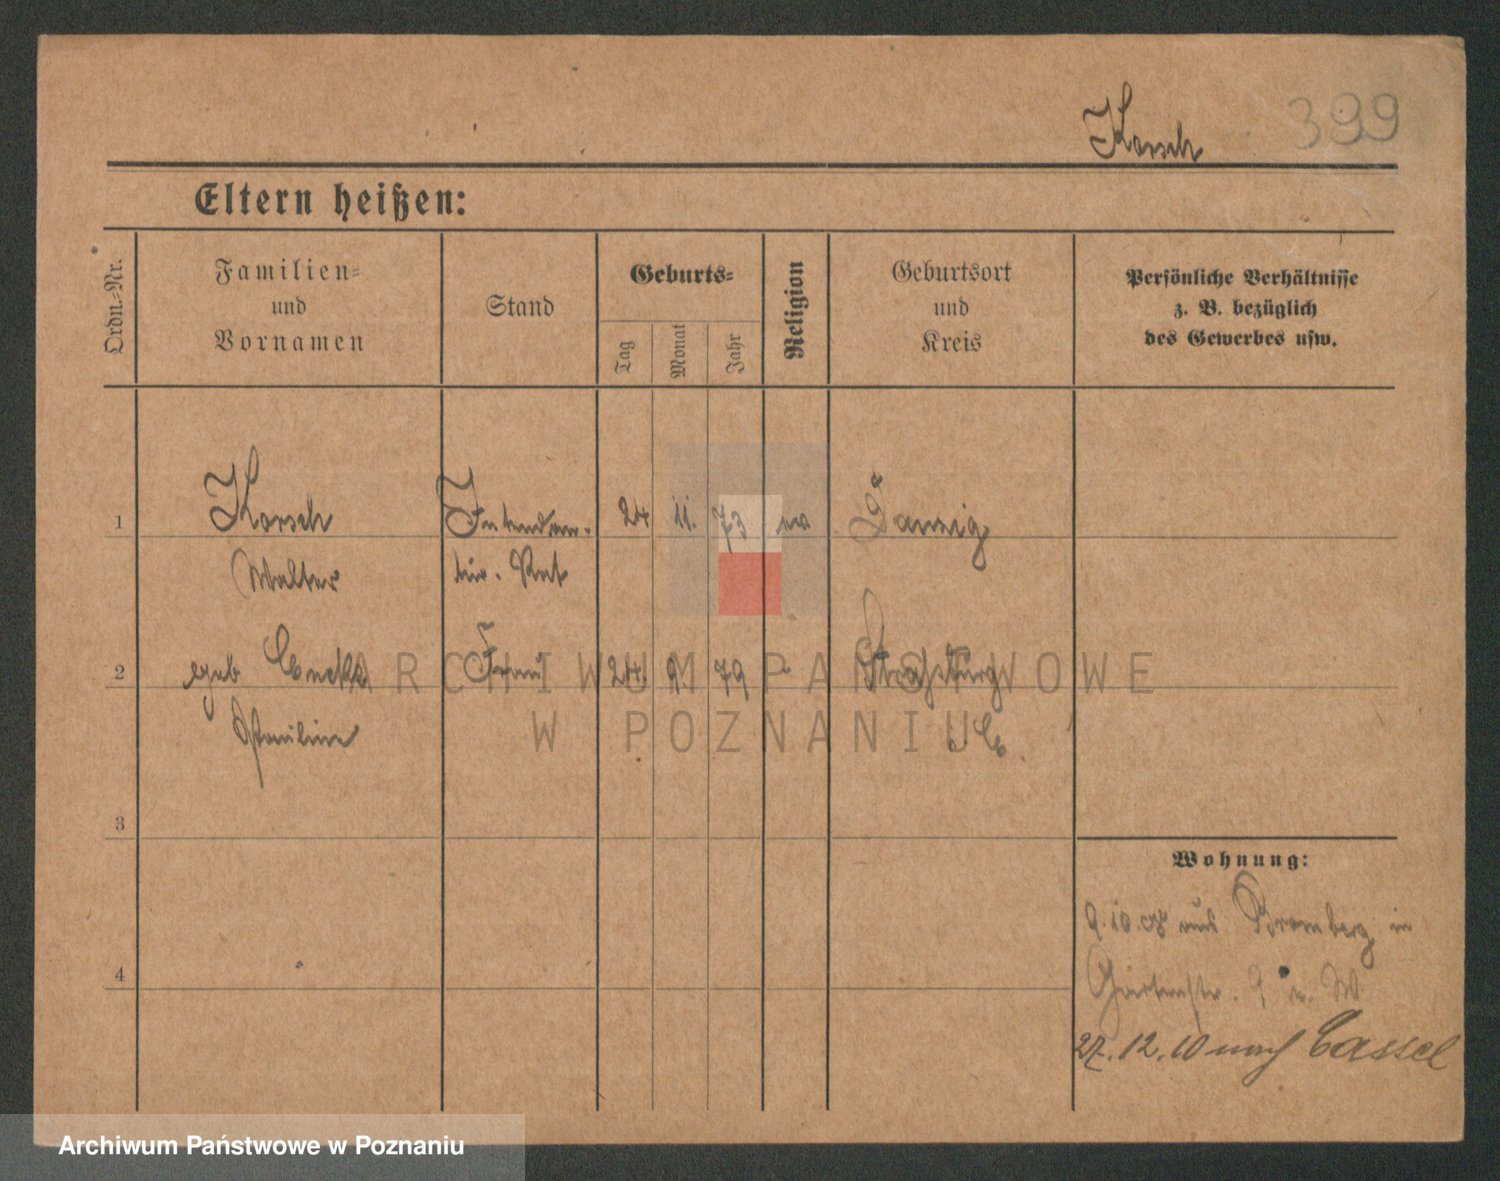 Korsch 399
Eltern heißen:
Ordn.-Nr.
Familien-
und
Vornamen
Stand
Geburts-
Tag
Monat
Jahr
Religion
Geburtsort
und
Kreis
Persönliche Verhältnisse
z. B. bezüglich
des Gewerbes usw.
1 Korsch Intendan- 24 11. 73 ev Danzig
Walter tur. Rat
2 geb Frau 24. 9. 79 " Straßburg
Pauline E.
3
4
Wohnung:
9.10.08 aus Bromberg in
Gartenstr. 9
27.12.10 nach Cassel
ARCHIWUM PAŃSTWOWE
W POZNANIU
Archiwum Państwowe w Poznaniu